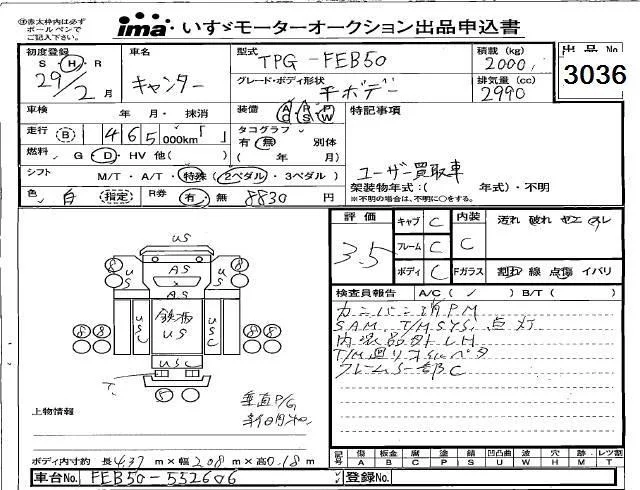 ㊟赤太枠内は必ずボールペンでご記入下さい。
ima いすゞモーターオークション出品申込書
初度登録 S・H・R 29/2月
車名 キャンター
型式 TPG-FEB50
積載(kg) 2000
出品No 3036
グレード・ボディ形状 平ボデー
排気量(cc) 2990
車検 年 月・抹消
装備 AC PS PW
特記事項
走行 B 465,000km「 」
タコグラフ 有・無 別体 ( 年 月)
燃料 G・D・HV 他( )
ユーザー買取車
シフト M/T・A/T・特殊(2ペダル・3ペダル)
架装物年式:( 年式)・不明
※不明の場合は、不明に○をする。
色 白 (指定)
R券 有・無 8830円
評価 3.5
キャブ C
内装 C
汚れ 破れ ヤエ
フレーム C
ボディ C
Fガラス 割れ 線 点傷 イバリ
検査員報告 A/C( / ) B/T( )
P.M
SAM. T/M SYS. 点灯
内装品外レ
フレームS一部C
US
AS
AS
US
US
US
鉄板
US
USC
垂直P/G
上物情報
ボディ内寸約 長4.37m×幅2.08m×高0.18m
記号 傷A 板B 腐C 塗P 錆S 凹凸曲U 波W 穴H 跡M レツ割T
車台No. FEB50-552606
登録No.